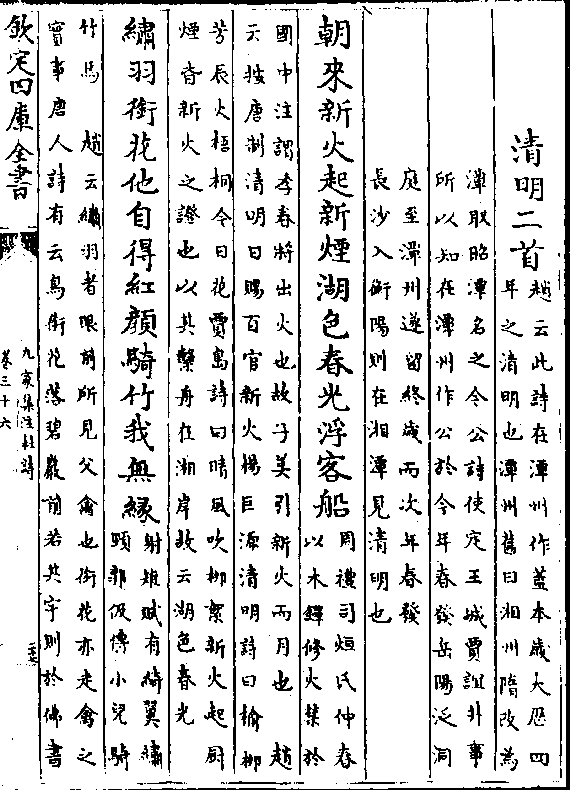 清明二首
趙云此詩在潭州作蓋本歲大厯四
年之清明也潭州舊曰相州隋改為
潭取昭潭名之今公詩使定王城賈誼井事
所以知在潭州作公於今年春發岳陽泛洞
庭至潭州遂留終歲而次年春發
長沙入衡陽則在湘潭見清明也
朝來新火起新煙湖色春光浮客船
周禮司烜氏仲春
以木鐸修火禁於
國中注謂季春將出火也故子美引新火而月也 趙
云按唐制清明日賜百官新火楊巨源清明詩曰榆柳
芳辰火梧桐今日花賈島詩曰晴風吹柳絮新火起厨
煙皆新火之證也以其繫舟在湘岸故云湖色春光
繡羽銜花他自得紅顔騎竹我無縁
射雉賦有綺翼繡
頸郭伋傳小兒騎
竹馬 趙云繡羽者眼前所見父禽也銜花亦走禽之
實事唐人詩有云鳥銜花落碧巖前若其字則於佛書
欽定四庫全書
九家集注杜詩
卷三十六